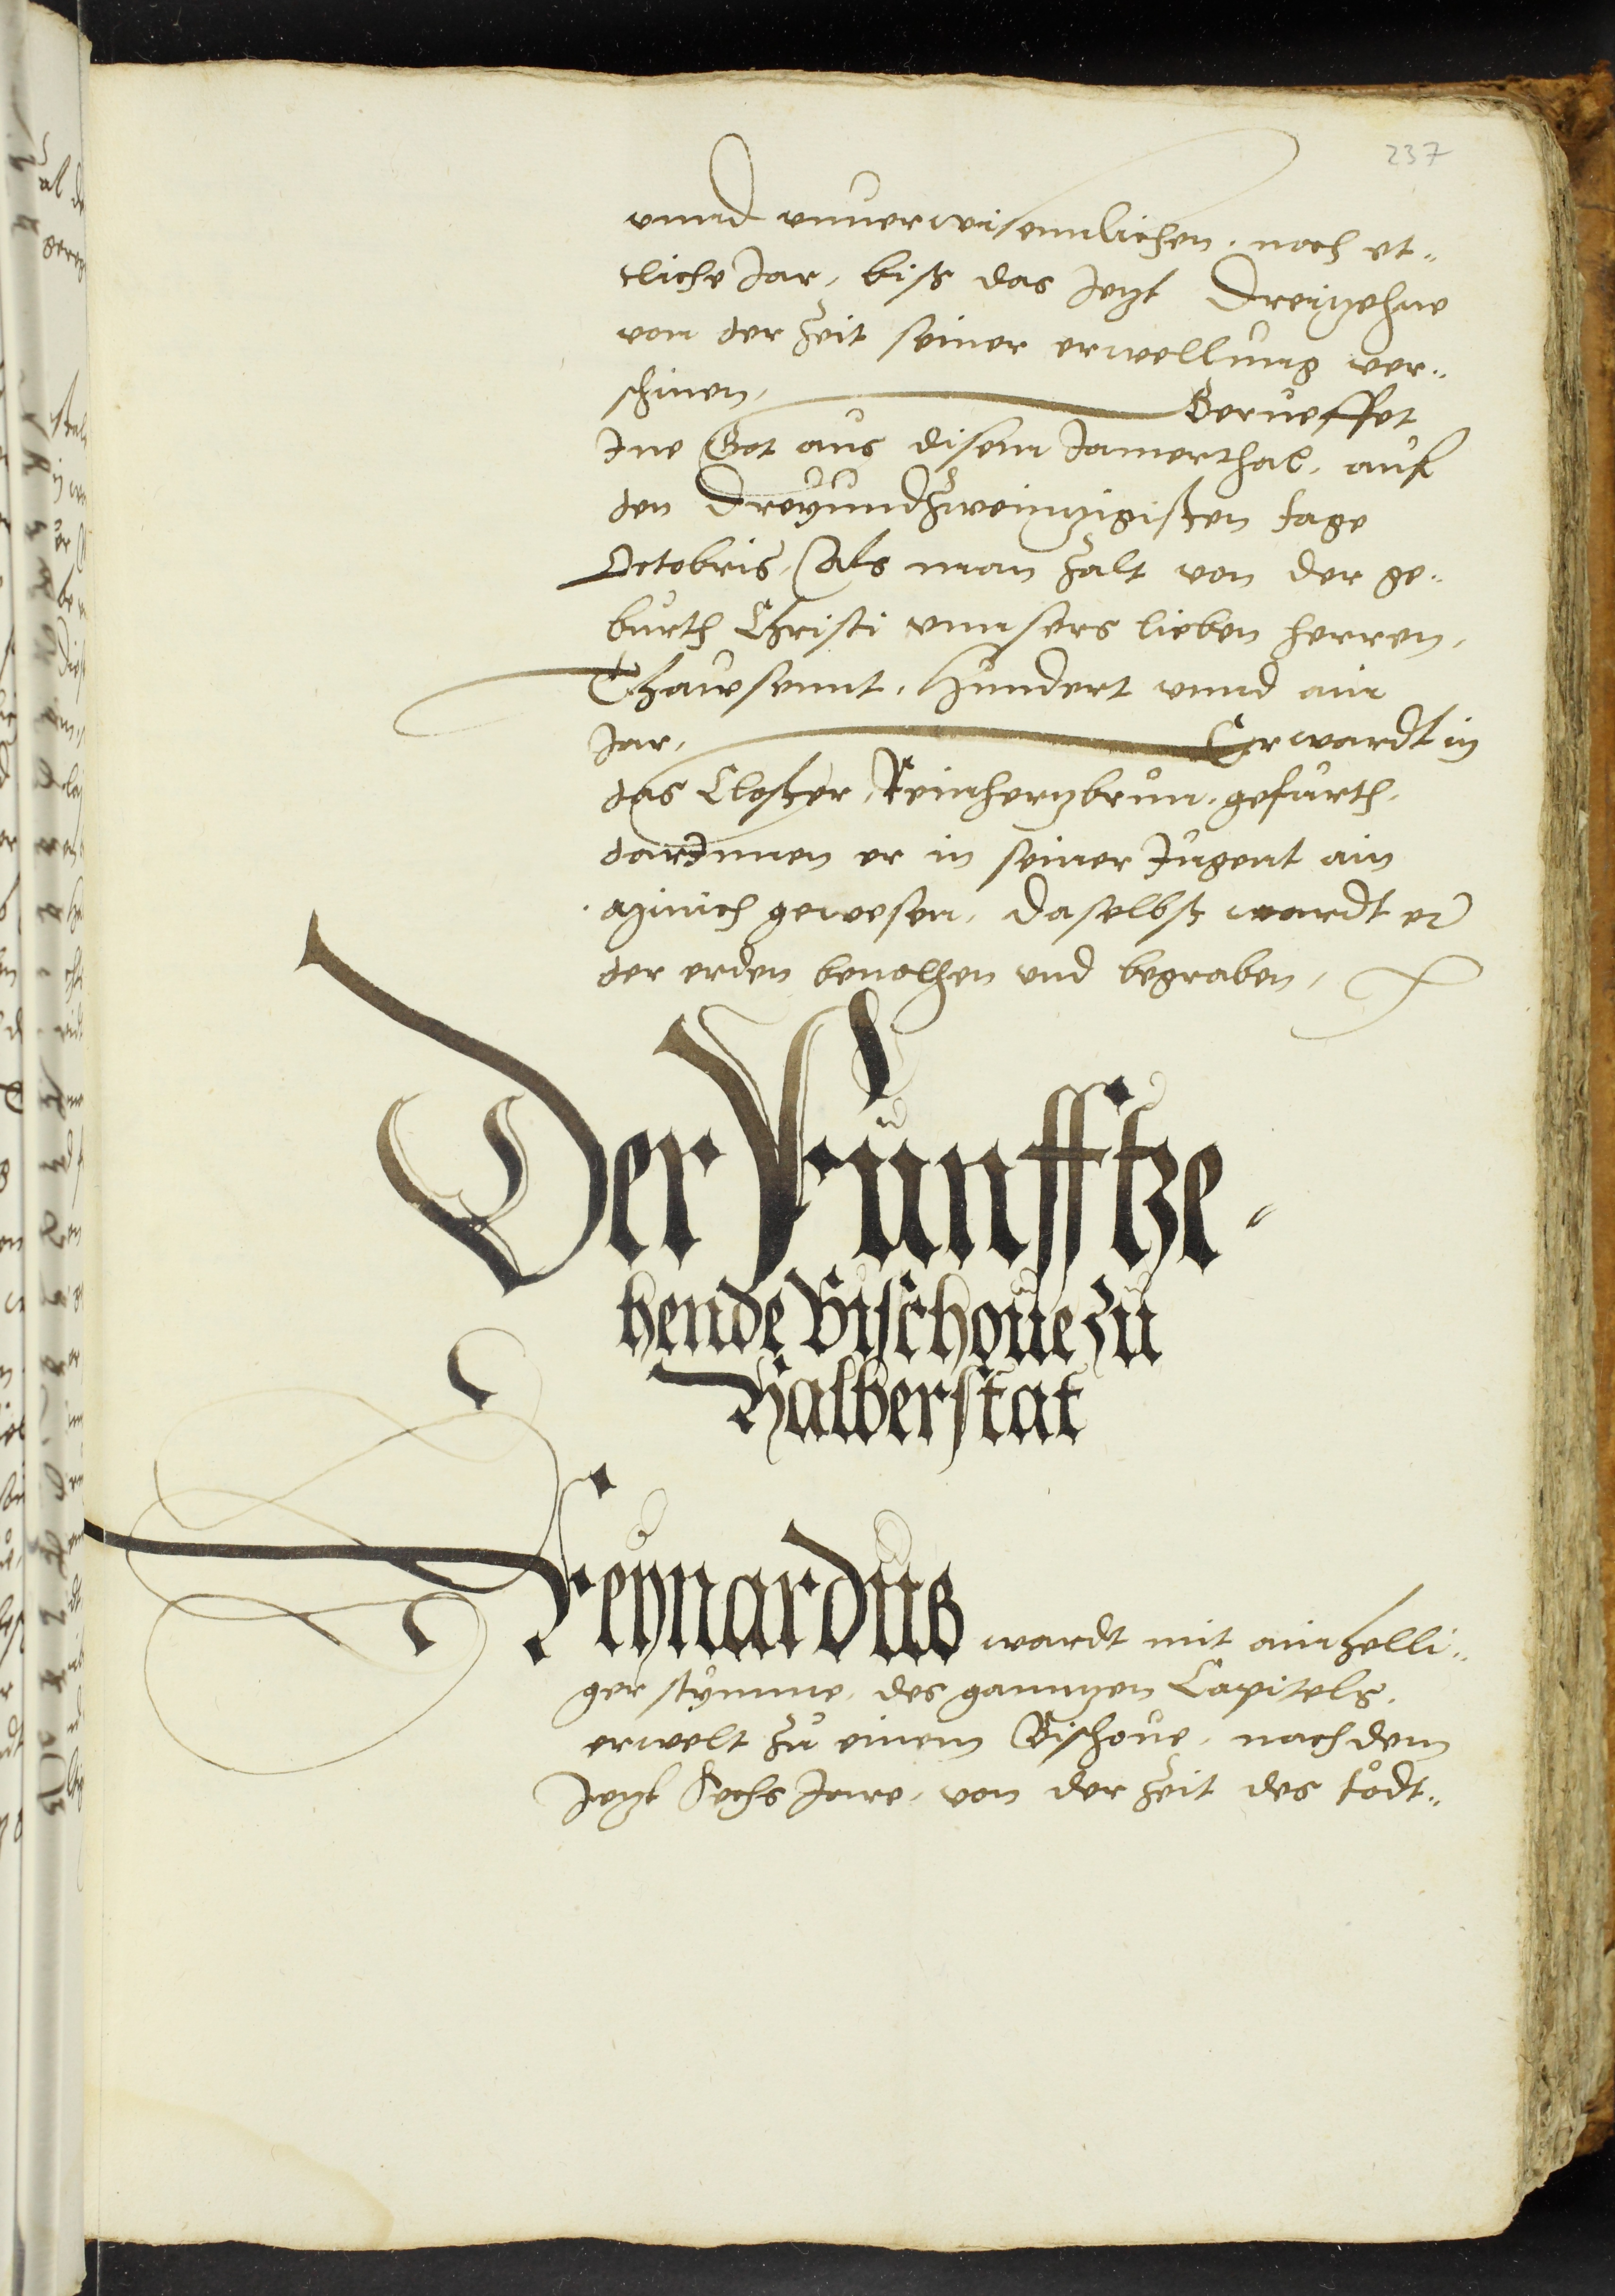 237
vnnd vnuerweisennlichen, noch et-
tliche Jar, biß das Jetzt Dreitzehne
von der Zeit seiner erwellung ver-
schinen, Berüeffet
Ine Got aus disem Jamerthal, auf
den Dreyundzweintzigisten tage
Octobris, Als man Zalt von der ge-
burth Christi vnnsers lieben herren,
Thawsennt, Hundert vnnd ain
Jar, Er wardt in
das Closter, Reinhertzbrun, gefürth,
darJnnen er in seiner Jugent ain
Münich gewesen, Daselbst wardt er
der erden beuolhen vnd begraben,
Der Fünfftze-
hende Bischoue zu
Halberstat
Reynardus wardt mit ainhelli-
ger stymme, des ganntzen Capitels,
erwelt zu einem Bischoue, nachdem
Jetzt Sechs Jare, von der Zeit des todt-